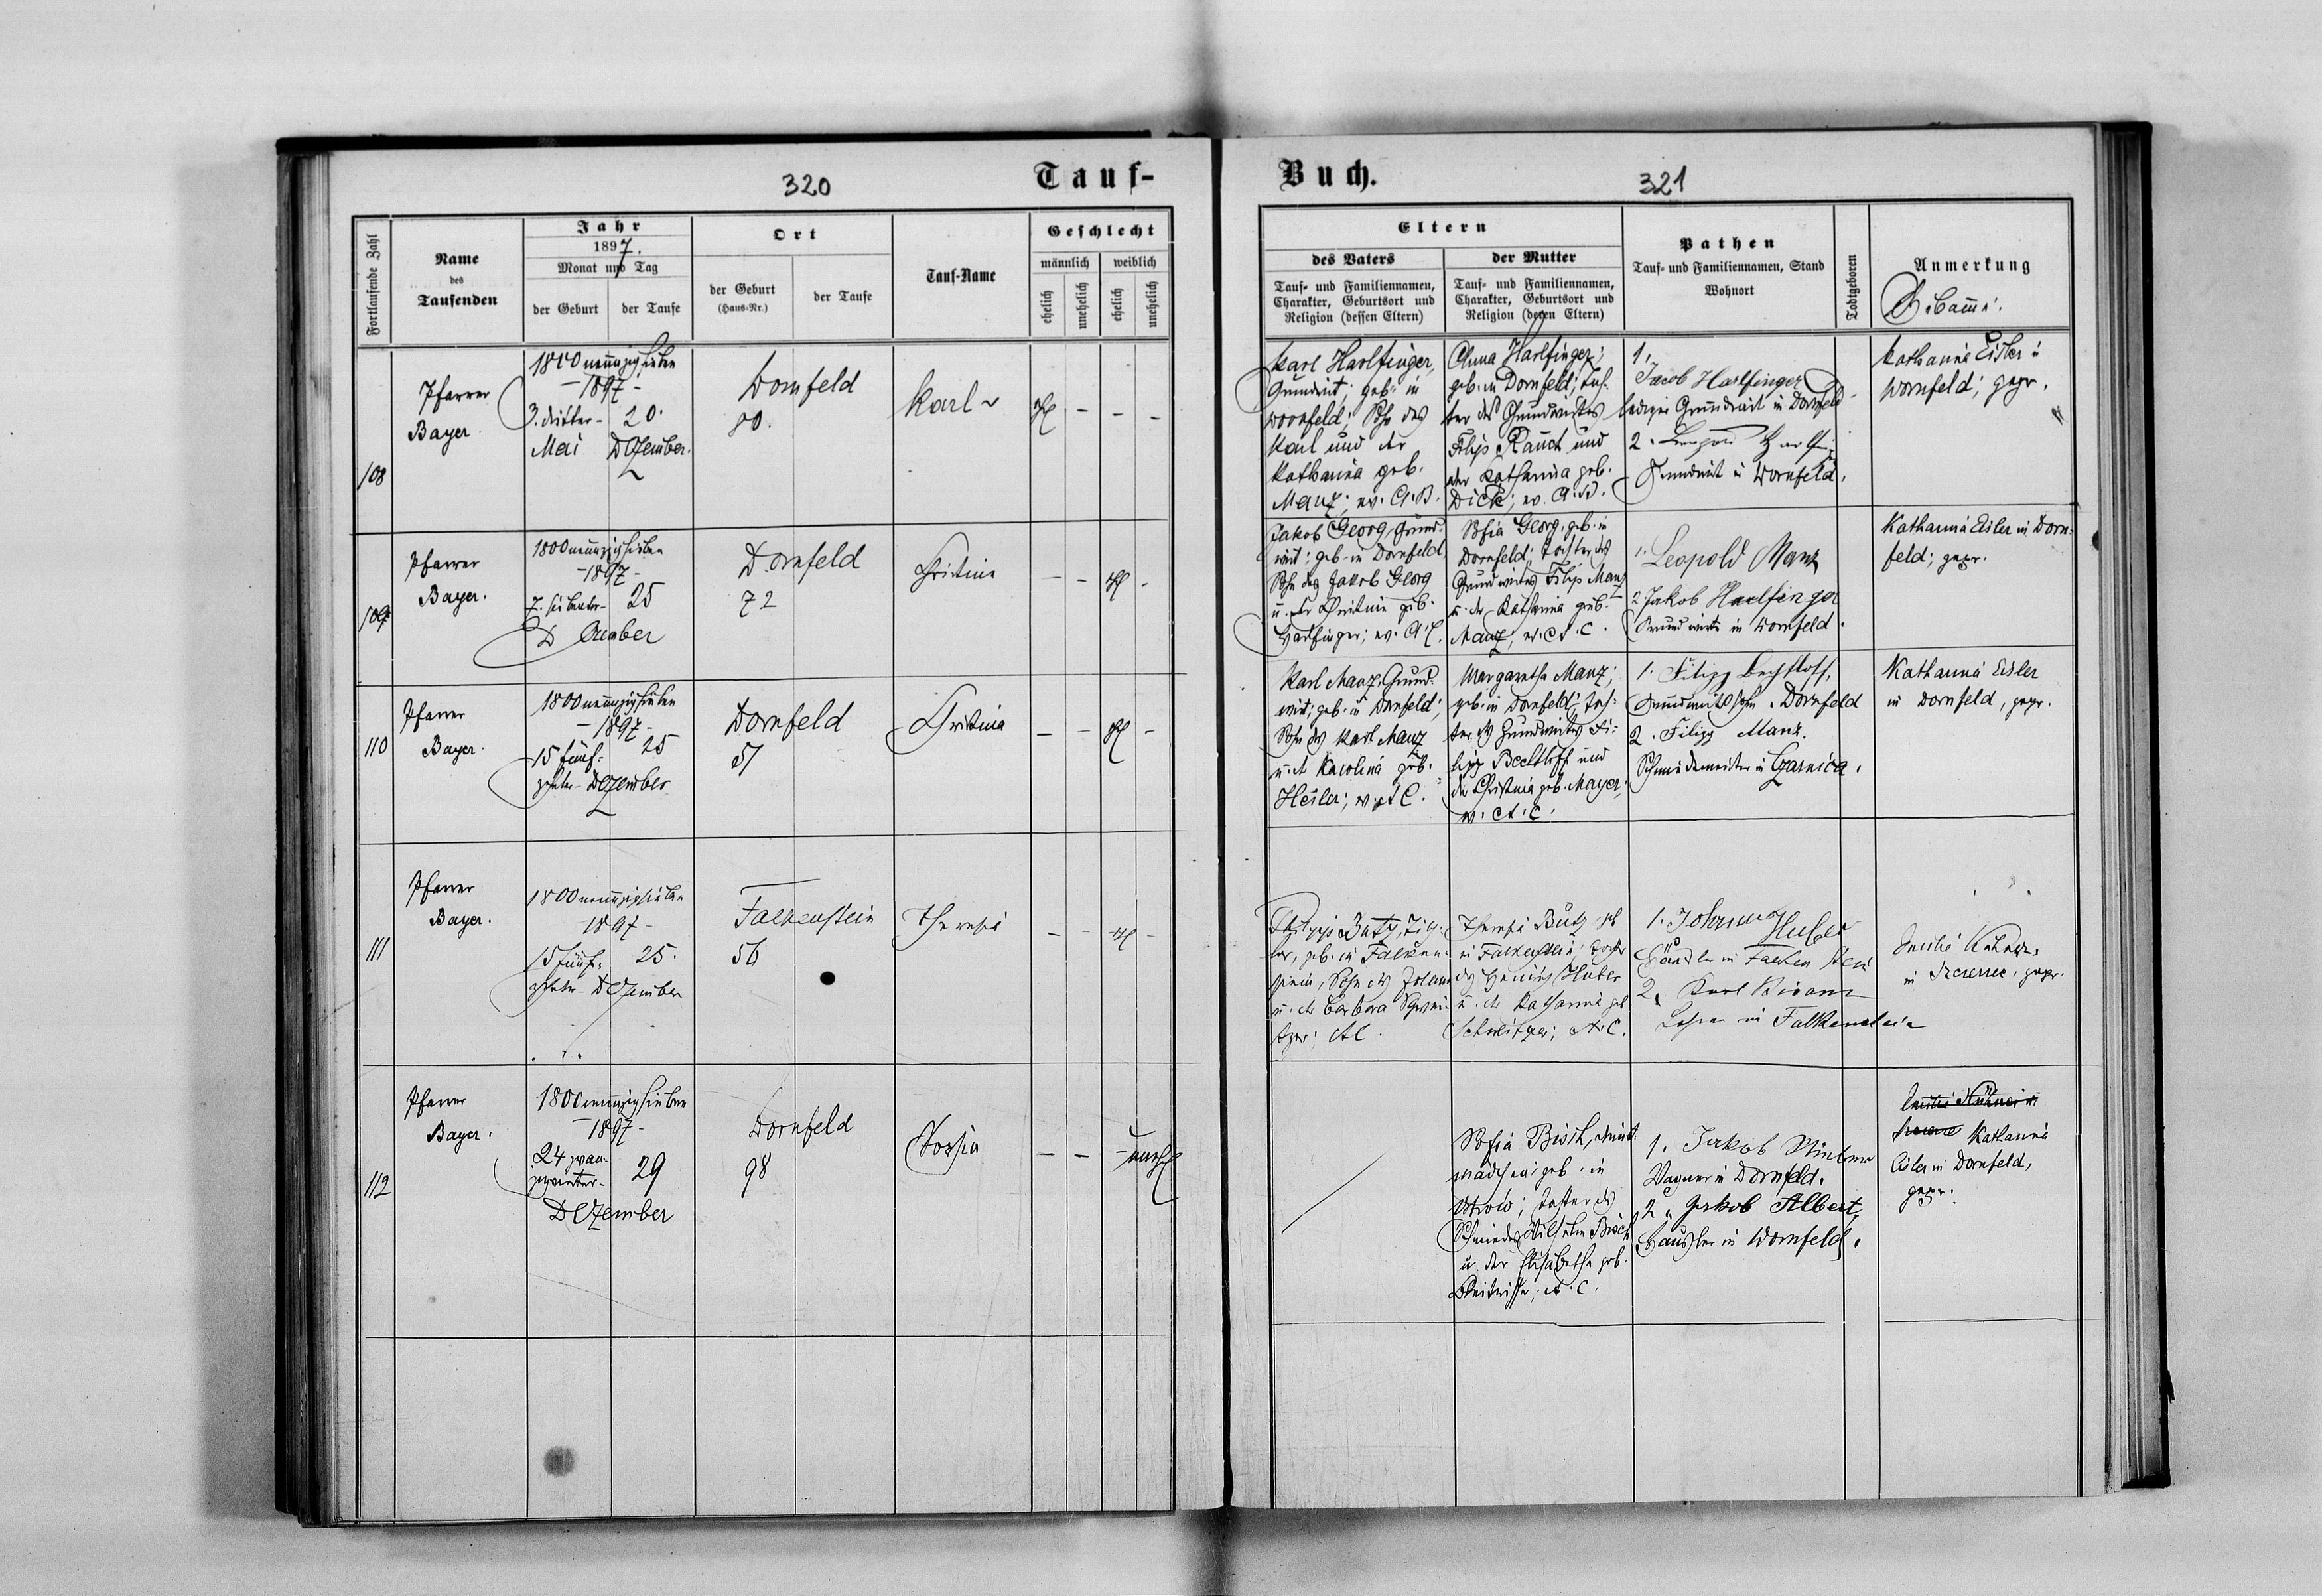 320
Tauf-
Fortlaufende Zahl
Name
des
Taufenden
Jahr
1897.
Monat und Tag
der Geburt
der Taufe
Ort
der Geburt
(Haus-Nr.)
der Taufe
Tauf-Name
Geschlecht
männlich
weiblich
ehelich
unehelich
ehelich
unehelich
108
Pfarrer
Bayer
1800 neunzig sieben
- 1897 -
3. dritter - 20.
Mai Dezember.
Dornfeld
80.
Karl
ehl - - -
109
Pfarrer
Bayer.
1800 neunzig sieben
- 1897 -
7. siebenter - 25
Dezember
Dornfeld
72
Christina
- - ehl -
110
Pfarrer
Bayer.
1800 neunzig sieben
- 1897 -
15 fünf- 25
zehnter - Dezember
Dornfeld
51
Christina
- - ehl -
111
Pfarrer
Bayer.
1800 neunzig sieben
- 1897 -
15 fünf- 25.
zehnter - Dezember
Falkenstein
56
Theresia
- - ehl -
112
Pfarrer
Bayer.
1800 neunzig sieben
- 1897 -
24 29
Dezember
Dornfeld
98
- - - unehl
Buch.
321
Eltern
des Vaters
Tauf- und Familiennamen,
Charakter, Geburtsort und
Religion (dessen Eltern)
der Mutter
Tauf- und Familiennamen,
Charakter, Geburtsort und
Religion (deren Eltern)
Pathen
Tauf- und Familiennamen, Stand
Wohnort
Todtgeboren
Anmerkung
Karl Harlfinger,
Grundwirt; geb. in
Dornfeld; Sohn des
Karl und der
Katharina geb.
Manz; ev. A.B.
Anna Harlfinger;
geb. in Dornfeld; Toch-
ter des Grundwirtes
Filip Rauch und
der Katharina geb.
Dick; ev. A.B.
1.
Jacob Harlfinger
lediger Grundwirt in Dornfeld
2.
Grundwirt in Dornfeld.
Katharina Eisler in
Dornfeld; gepr.
Jakob Georg, Grund-
wirt; geb. in Dornfeld
Sohn des Jakob Georg
u. der Christina geb.
Harlfinger; ev. A.C.
Sofia Georg, geb. in
Dornfeld; Tochter des
Grundwirtes Filip Manz
u. der Katharina geb.
Manz, ev. A.C.
1. Leopold Manz
2. Jakob Harlfinger
Grundwirte in Dornfeld.
Katharina Eisler in Dorn-
feld; gepr.
Karl Manz, Grund-
wirt; geb. in Dornfeld;
Sohn des Karl Manz
u. der Karolina geb.
Heiler; ev. A.C.
Margaretha Manz;
geb. in Dornfeld; Toch-
ter des Grundwirtes Fi-
lipp Bechtloff und
der Christina geb. Mayer;
ev. A.C.
1. Filipp Bechtloff,
Grundwirtssohn Dornfeld
2. Filipp Manz.
Schmiedemeister in Czarnica.
Katharina Eisler
in Dornfeld, gepr.
Philipp Butz,
geb. in Falken-
stein, Sohn des Johann
u. der Barbara Schwei-
tzer; AC.
Theresia Butz geb.
in Falkenstein, Tochter
des Heinrich Huber
u. der Katharina geb.
Schweitzer; A.C.
1. Johann Huber
in Falkenstein
2. Karl
Lehrer in Falkenstein
in gepr.
Sofia Bisch,
mädchen; geb. in
Tochter des
Schmiedes Wilhelm Bisch
u. der Elisabetha geb.
A.C.
1. Jakob
Wagner in Dornfeld.
2. Jakob Albert,
Häusler in Dornfeld.
Katharina
Eisler in Dornfeld,
gepr.